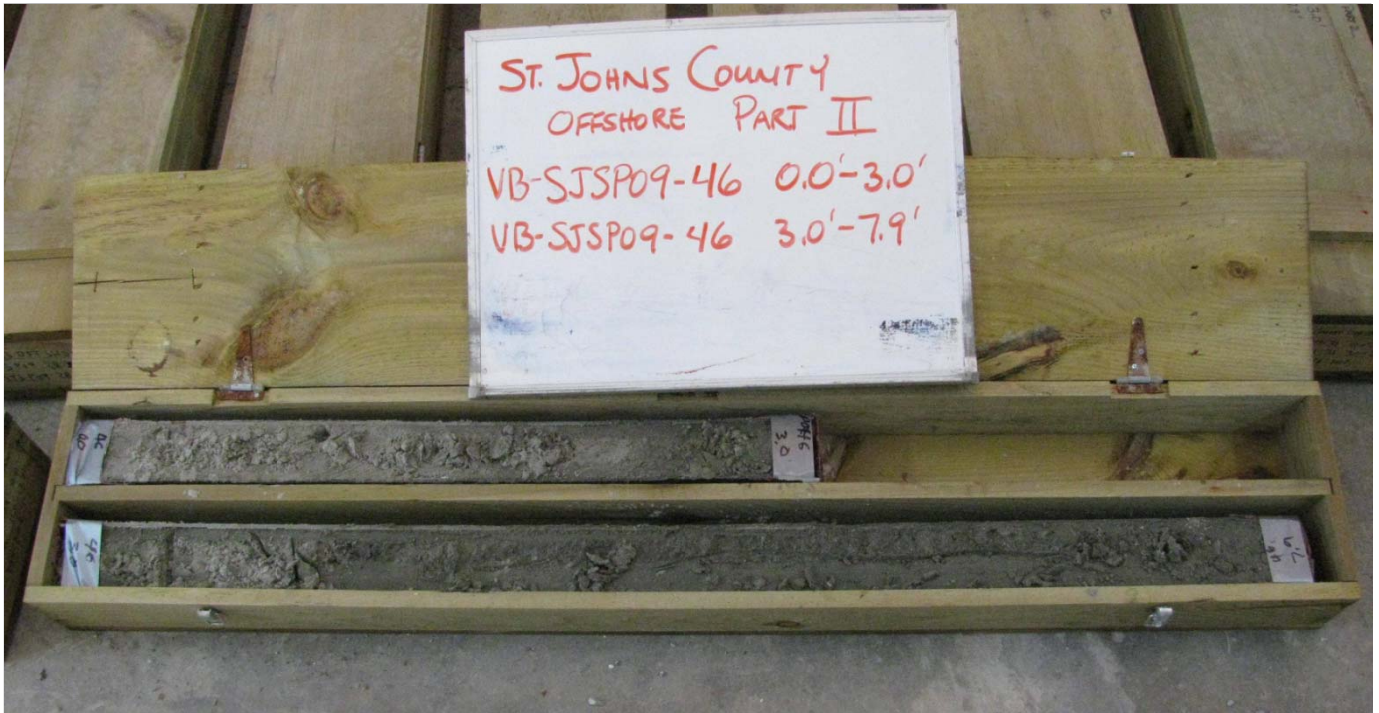 ST. JOHNS COUNTY
OFFSHORE PART II
VB-SJSP09-46 0.0'-3.0'
VB-SJSP09-46 3.0'-7.9'
46
0.0
3.0
46
3.0